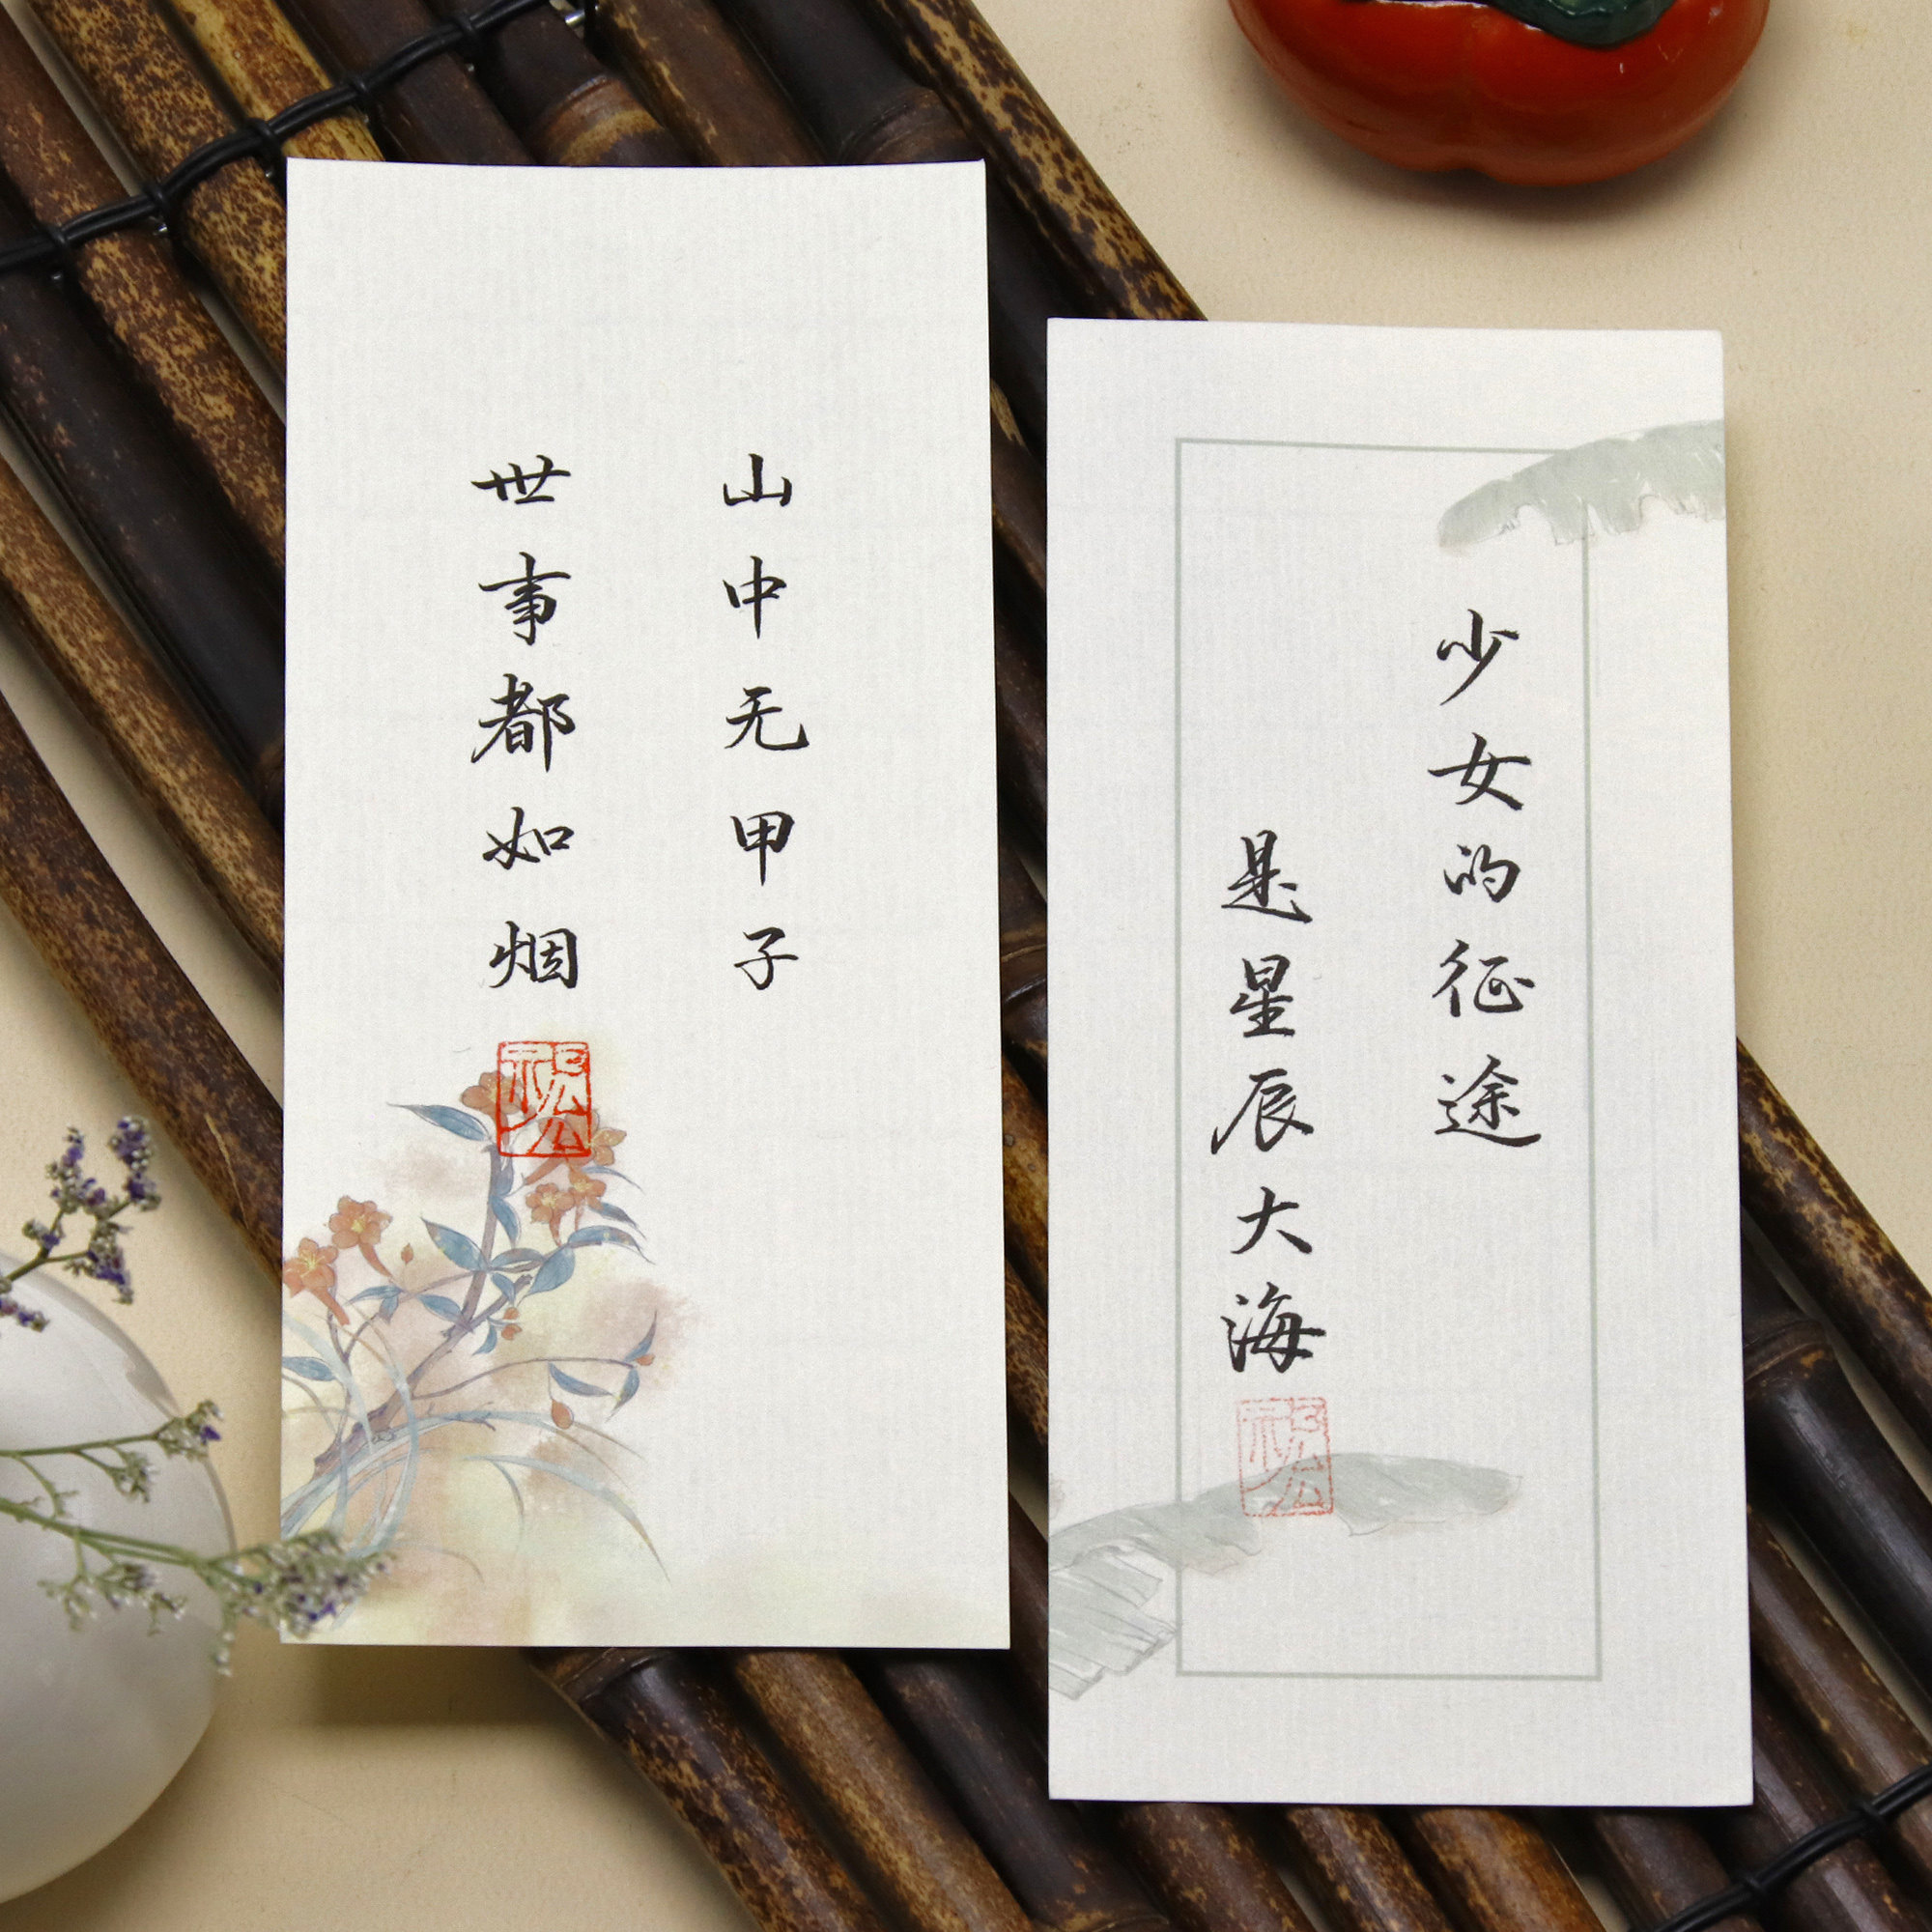 山中无甲子
世事都如烟
少女的征途
是星辰大海